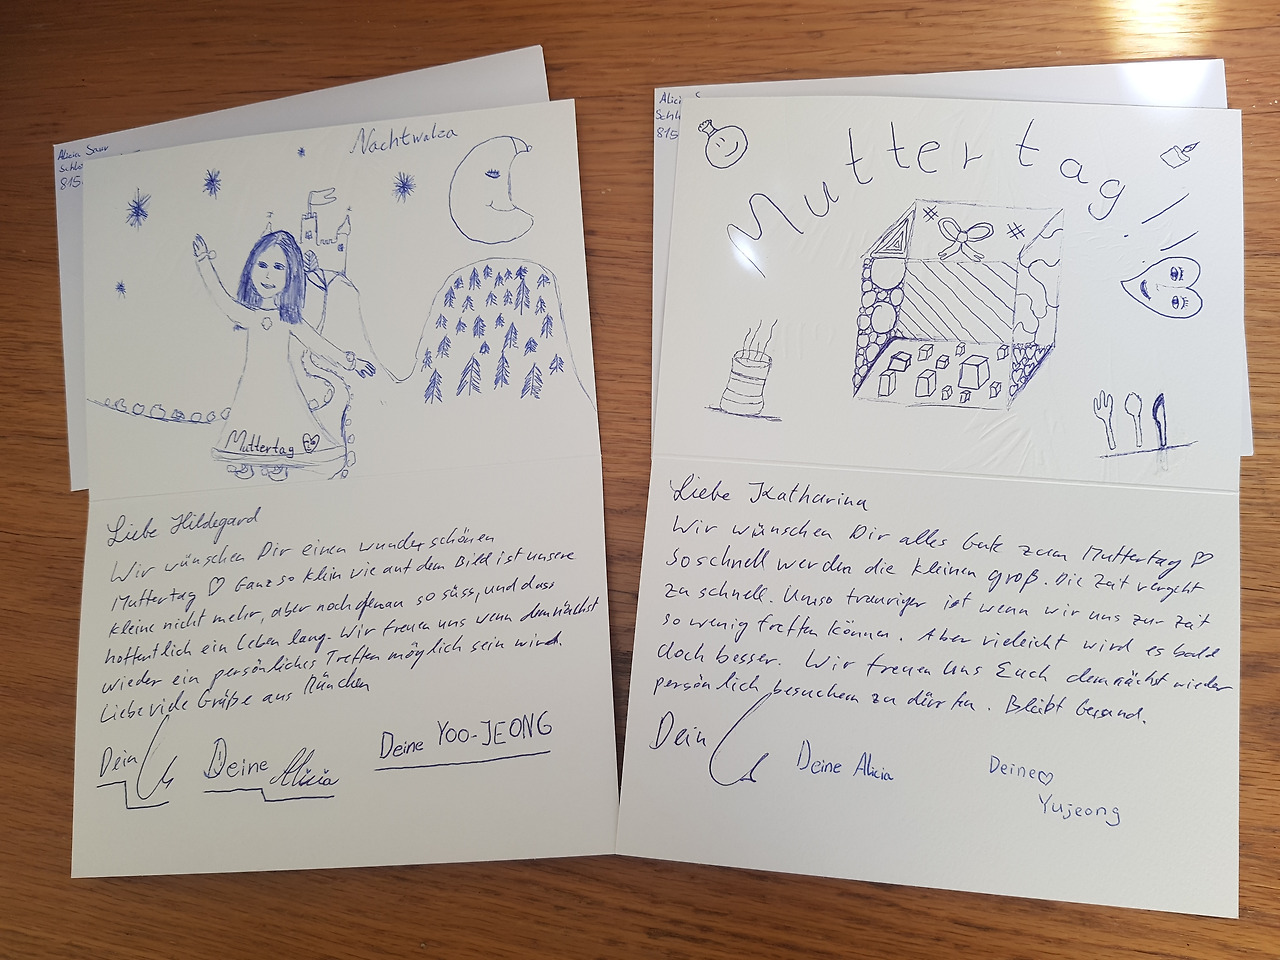 Alicia Saur
815
Nachtwalza
Muttertag
Liebe Hildegard
Wir wünschen Dir einen wunderschönen
Muttertag ♡ Ganz so klein wie auf dem Bild ist unsere
kleine nicht mehr, aber noch genau so süss, und dass
hoffentlich ein Leben lang. Wir freuen uns wenn demnächst
wieder ein persönliches Treffen möglich sein wird.
Liebe viele Grüße aus München
Dein
Deine Alicia
Deine YOO-JEONG
Alici S
Schl
815
Muttertag!
Liebe Katharina
Wir wünschen Dir alles Gute zum Muttertag ♡
So schnell werden die kleinen groß. Die Zeit vergeht
zu schnell. Umso trauriger ist wenn wir uns zur Zeit
so wenig treffen können. Aber vieleicht wird es bald
doch besser. Wir freuen uns Euch demnächst wieder
persönlich besuchen zu dürfen. Bleibt gesund.
Dein
Deine Alicia
Deine♡
Yujeong